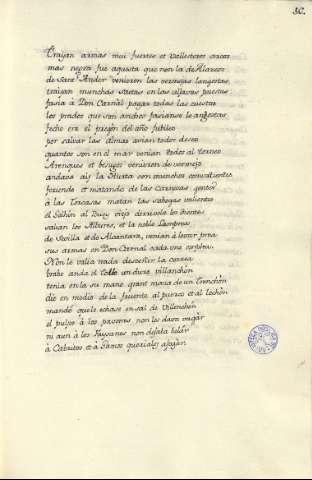 30.
Traÿan armas mui fuertes et Vallesteros cocas
mas negra fue aquesta que non la de Alarcos
de Sant' Ander venieron las vermejas langostas
traÿan munchas saetas en las aljavas puestas
fasia à Don Carnàl pagar todas las cuestas
los prados que son anchos fasianse le angostas
fecho era el pregòn del año jubileo
por salvar las almas avian todos deseo
quantos son en el mar venian todos al torneo
Arenques et besugos venieron de vermejo
andava aÿ la Hurta con munchos combatientes
feriendo et matando de las Carnosas gentes
à las Torcasas matan las cabezas valientes
el Dolfin al Buey viejo derribole los dientes
salian los Alteres, et la noble Lampreas
de Sevilla et de Alcantara, venian à levar prea
sus armas en Don Carnal cada una emplea
Non le valia nada desceñir la correa
brabo andа el tollo un duro villanchòn
tenia en la su mano grant masa de un Trenchòn
diò en medio de la fruente al puerco et al lechòn
mandò que los echase en sal de Villenchòn
el pulpo à los pavones non les dava vagàr
ni aun à los Faysanes non dexaba bolàr
à Cabritos et à Gamos queriales afogàr